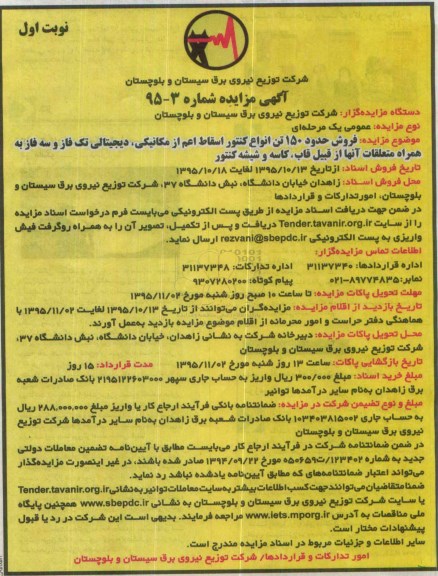 نوبت اول
شرکت توزیع نیروی برق سیستان و بلوچستان
آگهی مزایده شماره ۳-۹۵
دستگاه مزایده‌گزار: شرکت توزیع نیروی برق سیستان و بلوچستان
نوع مزایده: عمومی یک مرحله‌ای
موضوع مزایده: فروش حدود ۱۵۰ تن انواع کنتور اسقاط اعم از مکانیکی، دیجیتالی تک فاز و سه فاز به
همراه متعلقات آنها از قبیل قاب، کاسه و شیشه کنتور
تاریخ فروش اسناد: ازتاریخ ۱۳۹۵/۱۰/۱۳ لغایت ۱۳۹۵/۱۰/۱۸
محل فروش اسناد: زاهدان خیابان دانشگاه، نبش دانشگاه ۳۷، شرکت توزیع نیروی برق سیستان و
بلوچستان، امورتدارکات و قراردادها
در ضمن جهت دریافت اسناد مزایده از طریق پست الکترونیکی می‌بایست فرم درخواست اسناد مزایده
را از سایت Tender.tavanir.org.ir دریافت و پس از تکمیل، تصویر آن را به همراه روگرفت فیش
واریزی به پست الکترونیکی rezvani@sbepdc.ir ارسال نماید.
اطلاعات تماس مزایده‌گزار:
اداره قراردادها: ۳۱۱۳۷۳۴۰ اداره تدارکات: ۳۱۱۳۷۳۴۸
نمابر: ۸۹۷۷۴۸۳۵-۰۲۱ پیام کوتاه: ۹۳۰۷۲۸۰۲۰۰
مهلت تحویل پاکات مزایده: تا ساعت ۱۰ صبح روز شنبه مورخ ۱۳۹۵/۱۱/۰۲
تاریخ بازدید از اقلام مزایده: مزایده‌گران می‌توانند از تاریخ ۱۳۹۵/۱۰/۱۳ لغایت ۱۳۹۵/۱۱/۰۲ با
هماهنگی دفتر حراست و امور محرمانه از اقلام موضوع مزایده بازدید به‌عمل آورند.
محل تحویل پاکات مزایده: دبیرخانه شرکت به نشانی زاهدان، خیابان دانشگاه، نبش دانشگاه ۳۷،
شرکت توزیع نیروی برق سیستان و بلوچستان
تاریخ بازگشایی پاکات: ساعت ۱۳ روز شنبه مورخ ۱۳۹۵/۱۱/۰۲ مدت قرارداد: ۱۵ روز
مبلغ خرید اسناد: مبلغ ۳۰۰/۰۰۰ ریال واریز به حساب جاری سپهر ۲۱۹۵۱۲۲۶۰۳۰۰۰ بانک صادرات شعبه
برق زاهدان به‌نام سایر درآمدها توانیر
مبلغ و نوع تضمین شرکت در مزایده: ضمانتنامه بانکی فرآیند ارجاع کار یا واریز مبلغ ۲۸۸,۰۰۰,۰۰۰ ریال
به حساب جاری ۰۱۰۳۴۰۳۸۱۵۰۰۲ بانک صادرات شعبه برق زاهدان به‌نام سایر درآمدها شرکت توزیع
نیروی برق سیستان و بلوچستان
در ضمن ضمانتنامه شرکت در فرآیند ارجاع کار می‌بایست مطابق با آیین‌نامه تضمین معاملات دولتی
جدید به شماره ۱۲۳۴۰۲/ت۵۰۶۵۹ه مورخ ۱۳۹۴/۰۹/۲۲ صادر شده باشند، در غیر اینصورت مزایده‌گذار
می‌تواند اعتبار ضمانتنامه‌های که مطابق آیین‌نامه یادشده نباشد رد نماید.
ضمنا متقاضیان می‌توانند جهت کسب اطلاعات بیشتر به سایت معاملات توانیر به نشانی Tender.tavanir.org.ir
یا سایت شرکت توزیع نیروی برق سیستان و بلوچستان به نشانی www.sbepdc.ir همچنین پایگاه
ملی مناقصات به آدرس www.iets.mporg.ir مراجعه فرمایند. بدیهی است این شرکت در رد یا قبول
پیشنهادات مختار است.
سایر اطلاعات و جزئیات مربوط در اسناد مزایده مندرج است.
امور تدارکات و قراردادها/ شرکت توزیع نیروی برق سیستان و بلوچستان